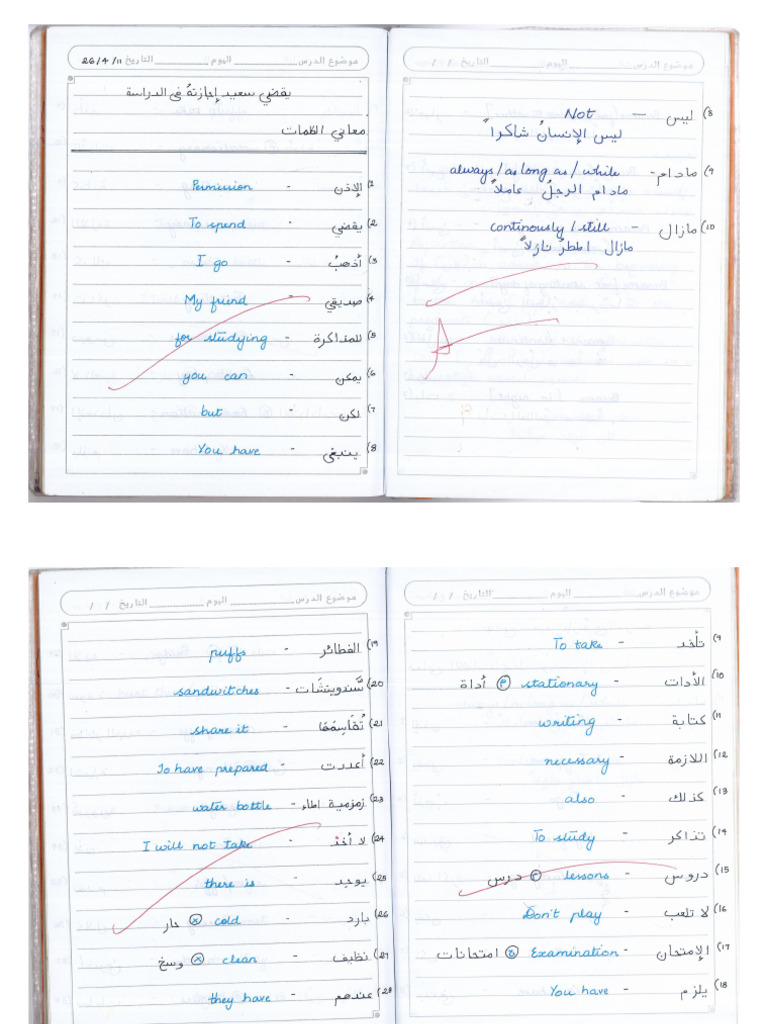 موضوع الدرس اليوم التاريخ / /
8) ليس — Not
ليس الإنسانُ شاكراً
9) مادام - always/as long as/while
مادام الرجلُ عاملاً
10) مازال - continously/still
مازال المطرُ نازلاً
A
موضوع الدرس اليوم التاريخ 26/4/11
يقضي سعيد إجازتهُ فى الدراسة
معاني الكلمات
1) الإذن - Permission
2) يقضي - To spend
3) أذهبُ - I go
4) صديقي - My friend
5) للمذاكرة - for studying
6) يمكن - you can
7) لكن - but
8) ينبغى - You have
موضوع الدرس اليوم التاريخ / /
9) تأخذ - To take
10) الأدات - stationary م أداة
11) كتابة - writing
12) اللازمة - necessary
13) كذلك - also
14) تذاكر - To study
15) دروس - lessons م درس
16) لا تلعب - Don't play
17) الإمتحان - Examination ج امتحانات
18) يلزم - You have
موضوع الدرس اليوم التاريخ / /
19) الفطائر - puffs
20) سَّندوينشَات - sandwitches
21) تُقَاسِمَهَا - share it
22) أعددت - To have prepared
23) زمزمية الماء - water bottle
24) لا أخذ - I will not take
25) يوجد - there is
26) بارد - cold x حار
27) نظيف - clean x وسخ
28) عندهم - they have